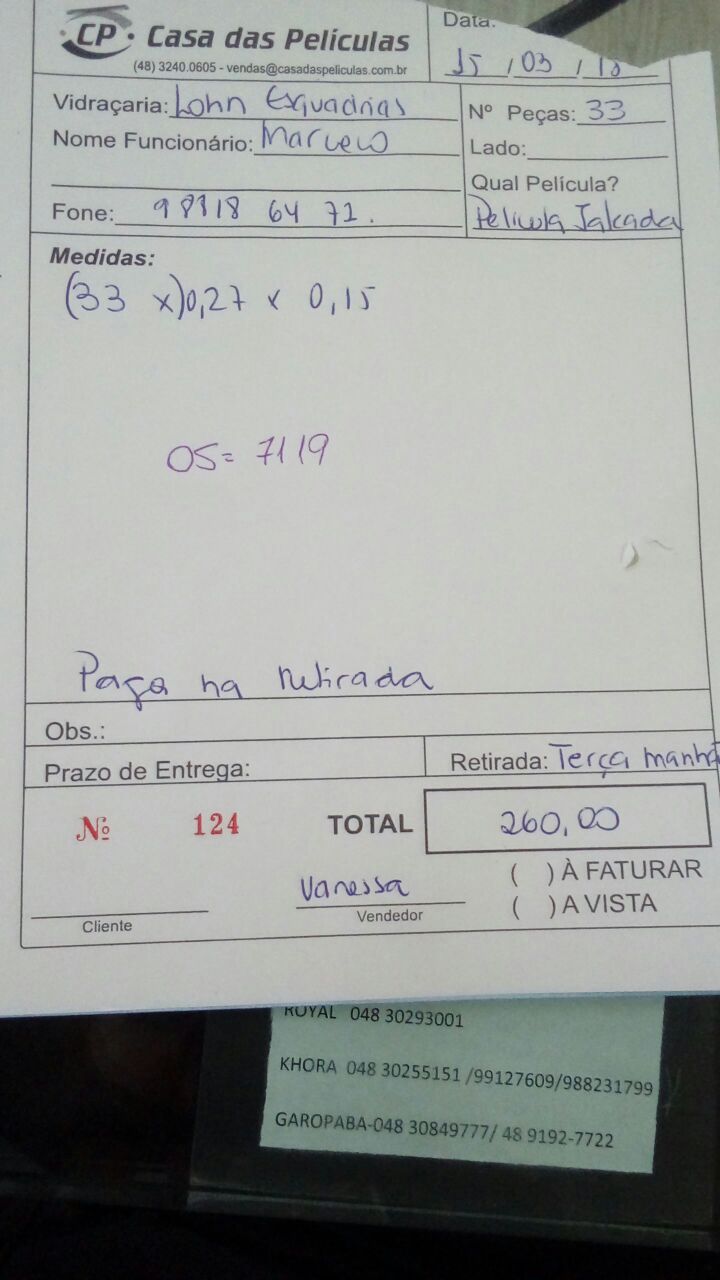 CP Casa das Películas
(48) 3240.0605 - vendas@casadaspeliculas.com.br
Data:
15 / 03 / 18
Vidraçaria: Lohn Esquadrias
Nº Peças: 33
Nome Funcionário: Marcelo
Lado:
Qual Película?
Fone: 98818 64 71.
Pelicula Jateada
Medidas:
(33 x) 0,27 x 0,15
OS= 7119
Pago na retirada
Obs.:
Prazo de Entrega:
Retirada: Terça manhã
Nº 124
TOTAL 260,00
( ) À FATURAR
Vanessa
( ) A VISTA
Cliente
Vendedor
ROYAL 048 30293001
KHORA 048 30255151 /99127609/988231799
GAROPABA-048 30849777/ 48 9192-7722